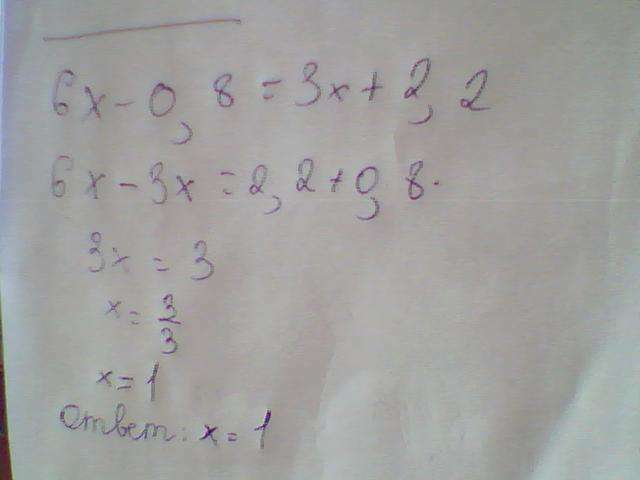 6x - 0,8 = 3x + 2,2
6x - 3x = 2,2 + 0,8.
3x = 3
x = 3/3
x = 1
Ответ: x = 1